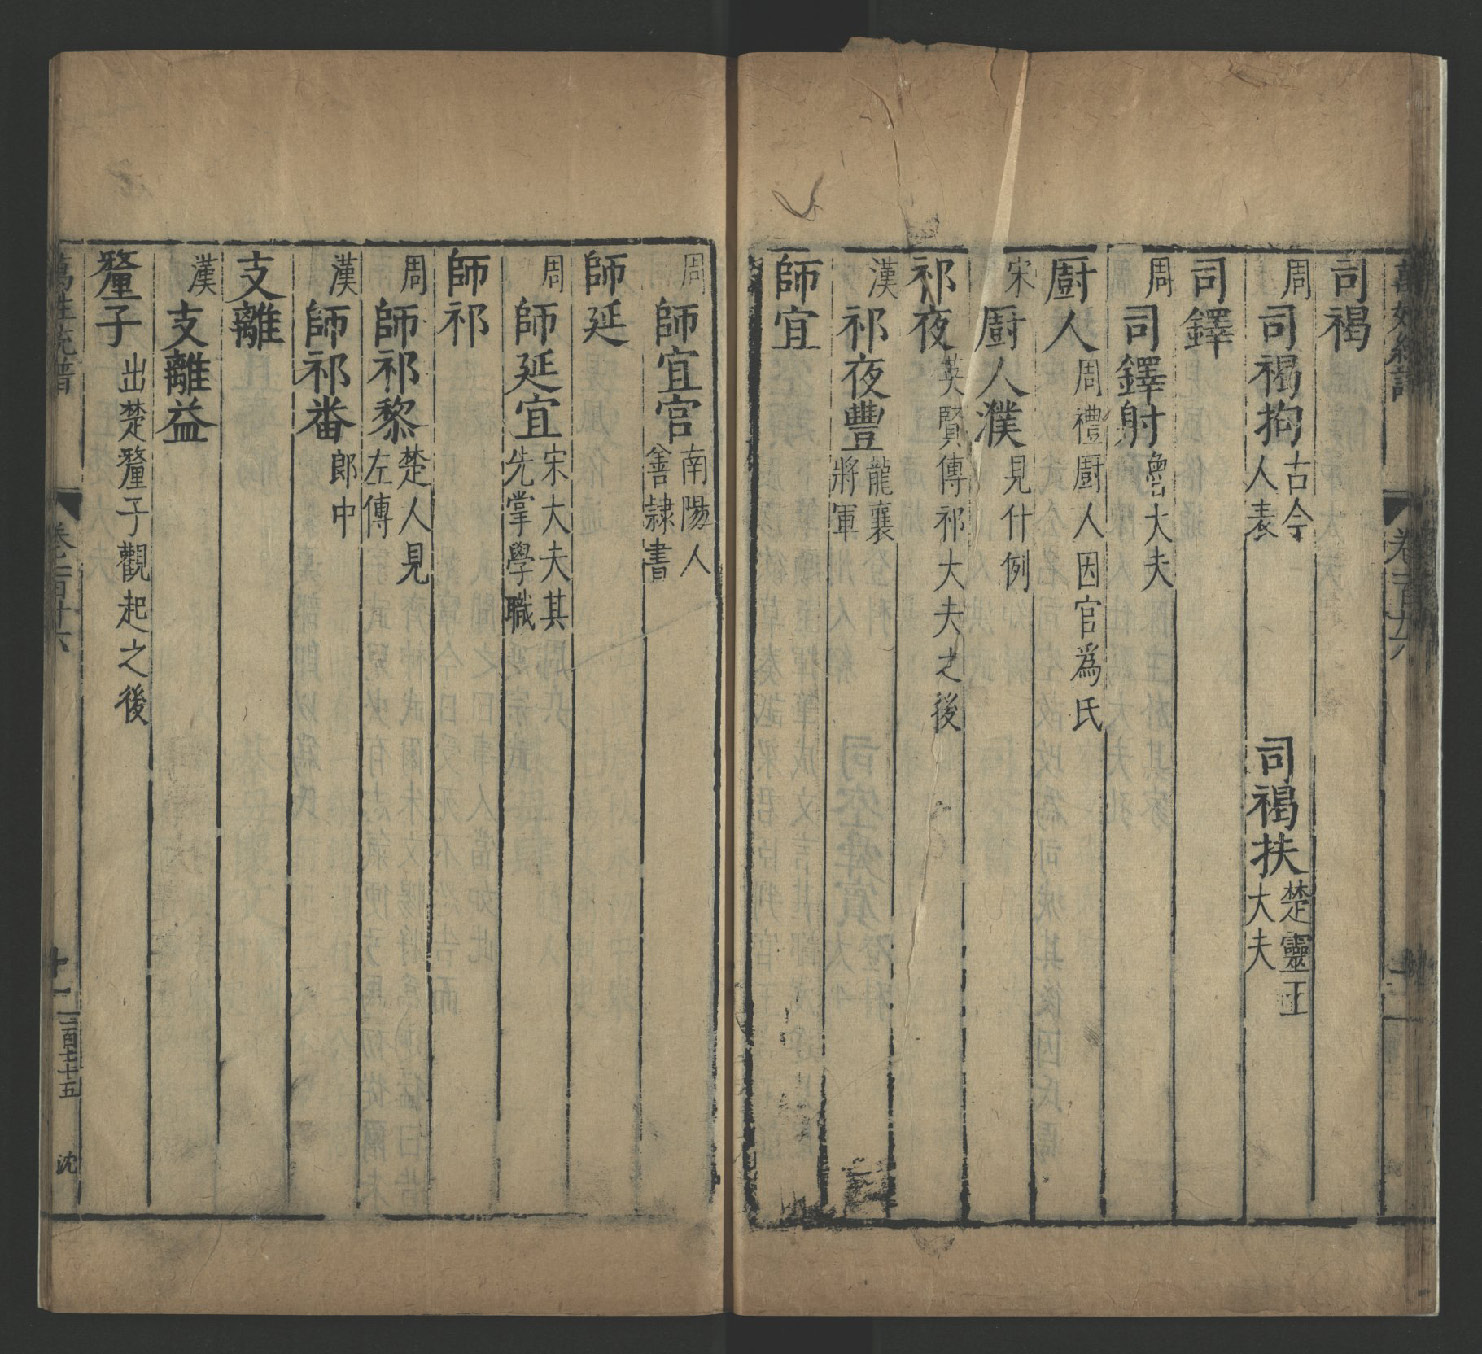 司褐
周 司褐拘 古今人表 司褐扶 楚靈王大夫
司鐸
周 司鐸射 魯大夫
厨人 周禮厨人因官為氏
宋 厨人濮 見什例
祁夜 英賢傳祁大夫之後
漢 祁夜豐 龍襄將軍
師宜
周 師宜官 南陽人善隷書
師延
周 師延宜 宋大夫其先掌學職
師祁
周 師祁黎 楚人見左傳
漢 師祁番 郎中
支離
漢 支離益
釐子 出楚釐子觀起之後
萬姓統譜 卷一百廿六 十一 二百七十五 沈